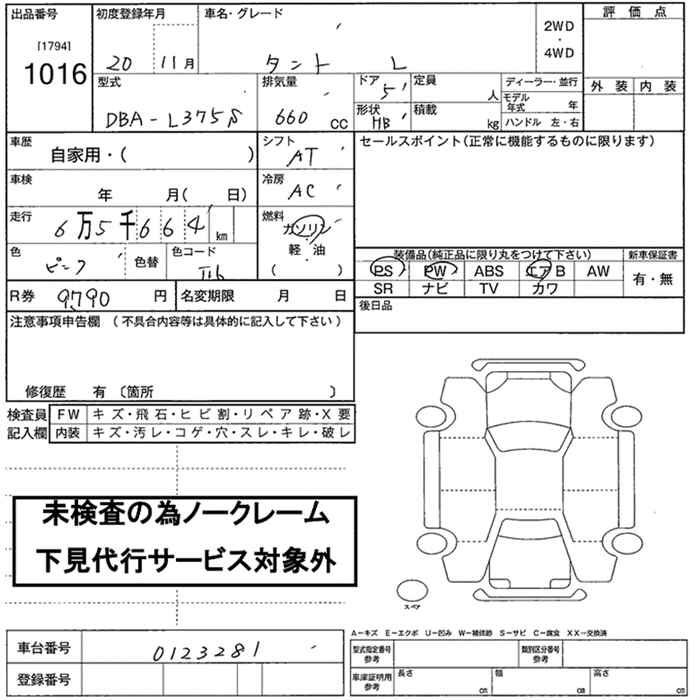 出品番号 初度登録年月 車名・グレード 評価点
[1794]
1016 20 11月 タント L 2WD・4WD
外装 内装
型式 排気量 ドア 5 定員 人 ディーラー・並行
DBA-L375S 660 cc 形状 HB 積載 kg モデル年式 年
ハンドル 左・右
車歴 自家用・( ) シフト AT セールスポイント(正常に機能するものに限ります)
車検 年 月( 日) 冷房 AC
走行 6万5千664 km 燃料 ガソリン・軽・油 ( )
色 ピンク 色替 色コード
装備品(純正品に限り丸をつけて下さい) 新車保証書
PS PW ABS エアB AW 有・無
SR ナビ TV カワ
R券 9,790 円 名変期限 月 日 後日品
注意事項申告欄 (不具合内容等は具体的に記入して下さい)
修復歴 有 〔箇所 〕
検査員 FW キズ・飛石・ヒビ割・リペア跡・X要
記入欄 内装 キズ・汚レ・コゲ・穴・スレ・キレ・破レ
未検査の為ノークレーム
下見代行サービス対象外
スペア
A-キズ E-エクボ U-凹み W-補修跡 S-サビ C-腐食 XX-交換済
車台番号 0123281
型式指定番号 参考 類別区分番号 参考
登録番号
車庫証明用 参考 長さ cm 幅 cm 高さ cm